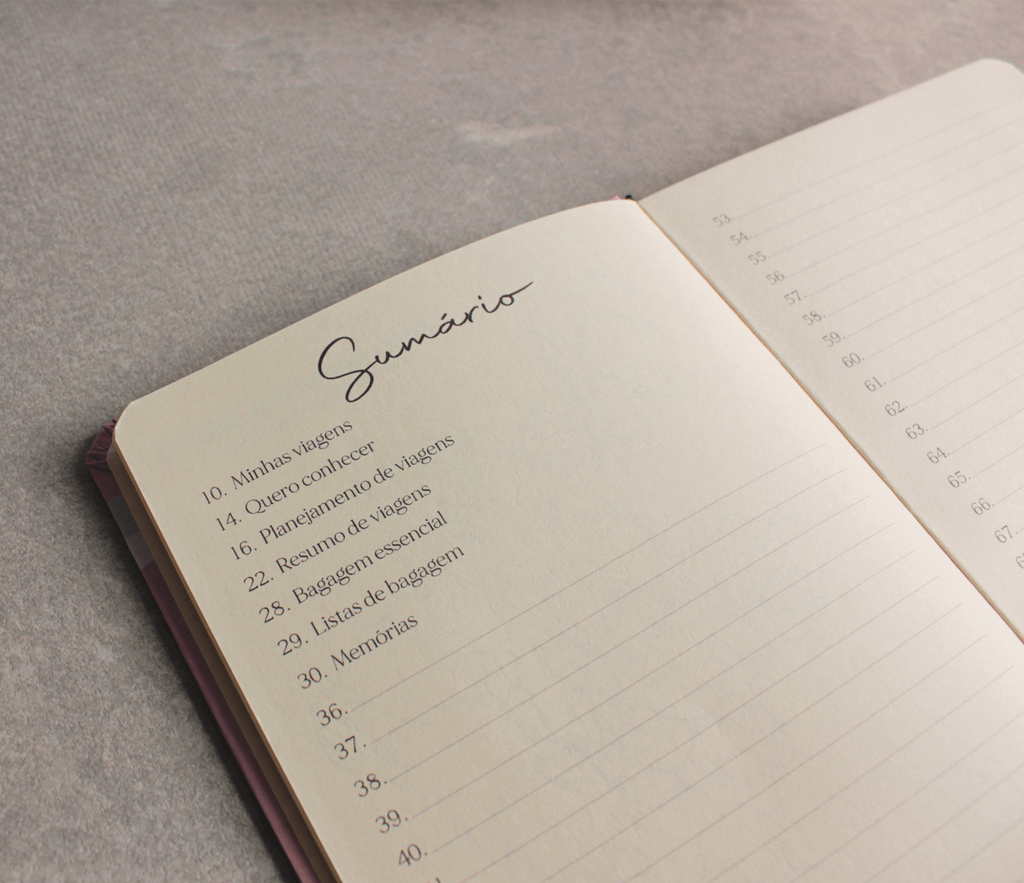 Sumário
10. Minhas viagens
14. Quero conhecer
16. Planejamento de viagens
22. Resumo de viagens
28. Bagagem essencial
29. Listas de bagagem
30. Memórias
36.
37.
38.
39.
40.
53.
54.
55.
56.
57.
58.
59.
60.
61.
62.
63.
64.
65.
66.
67.